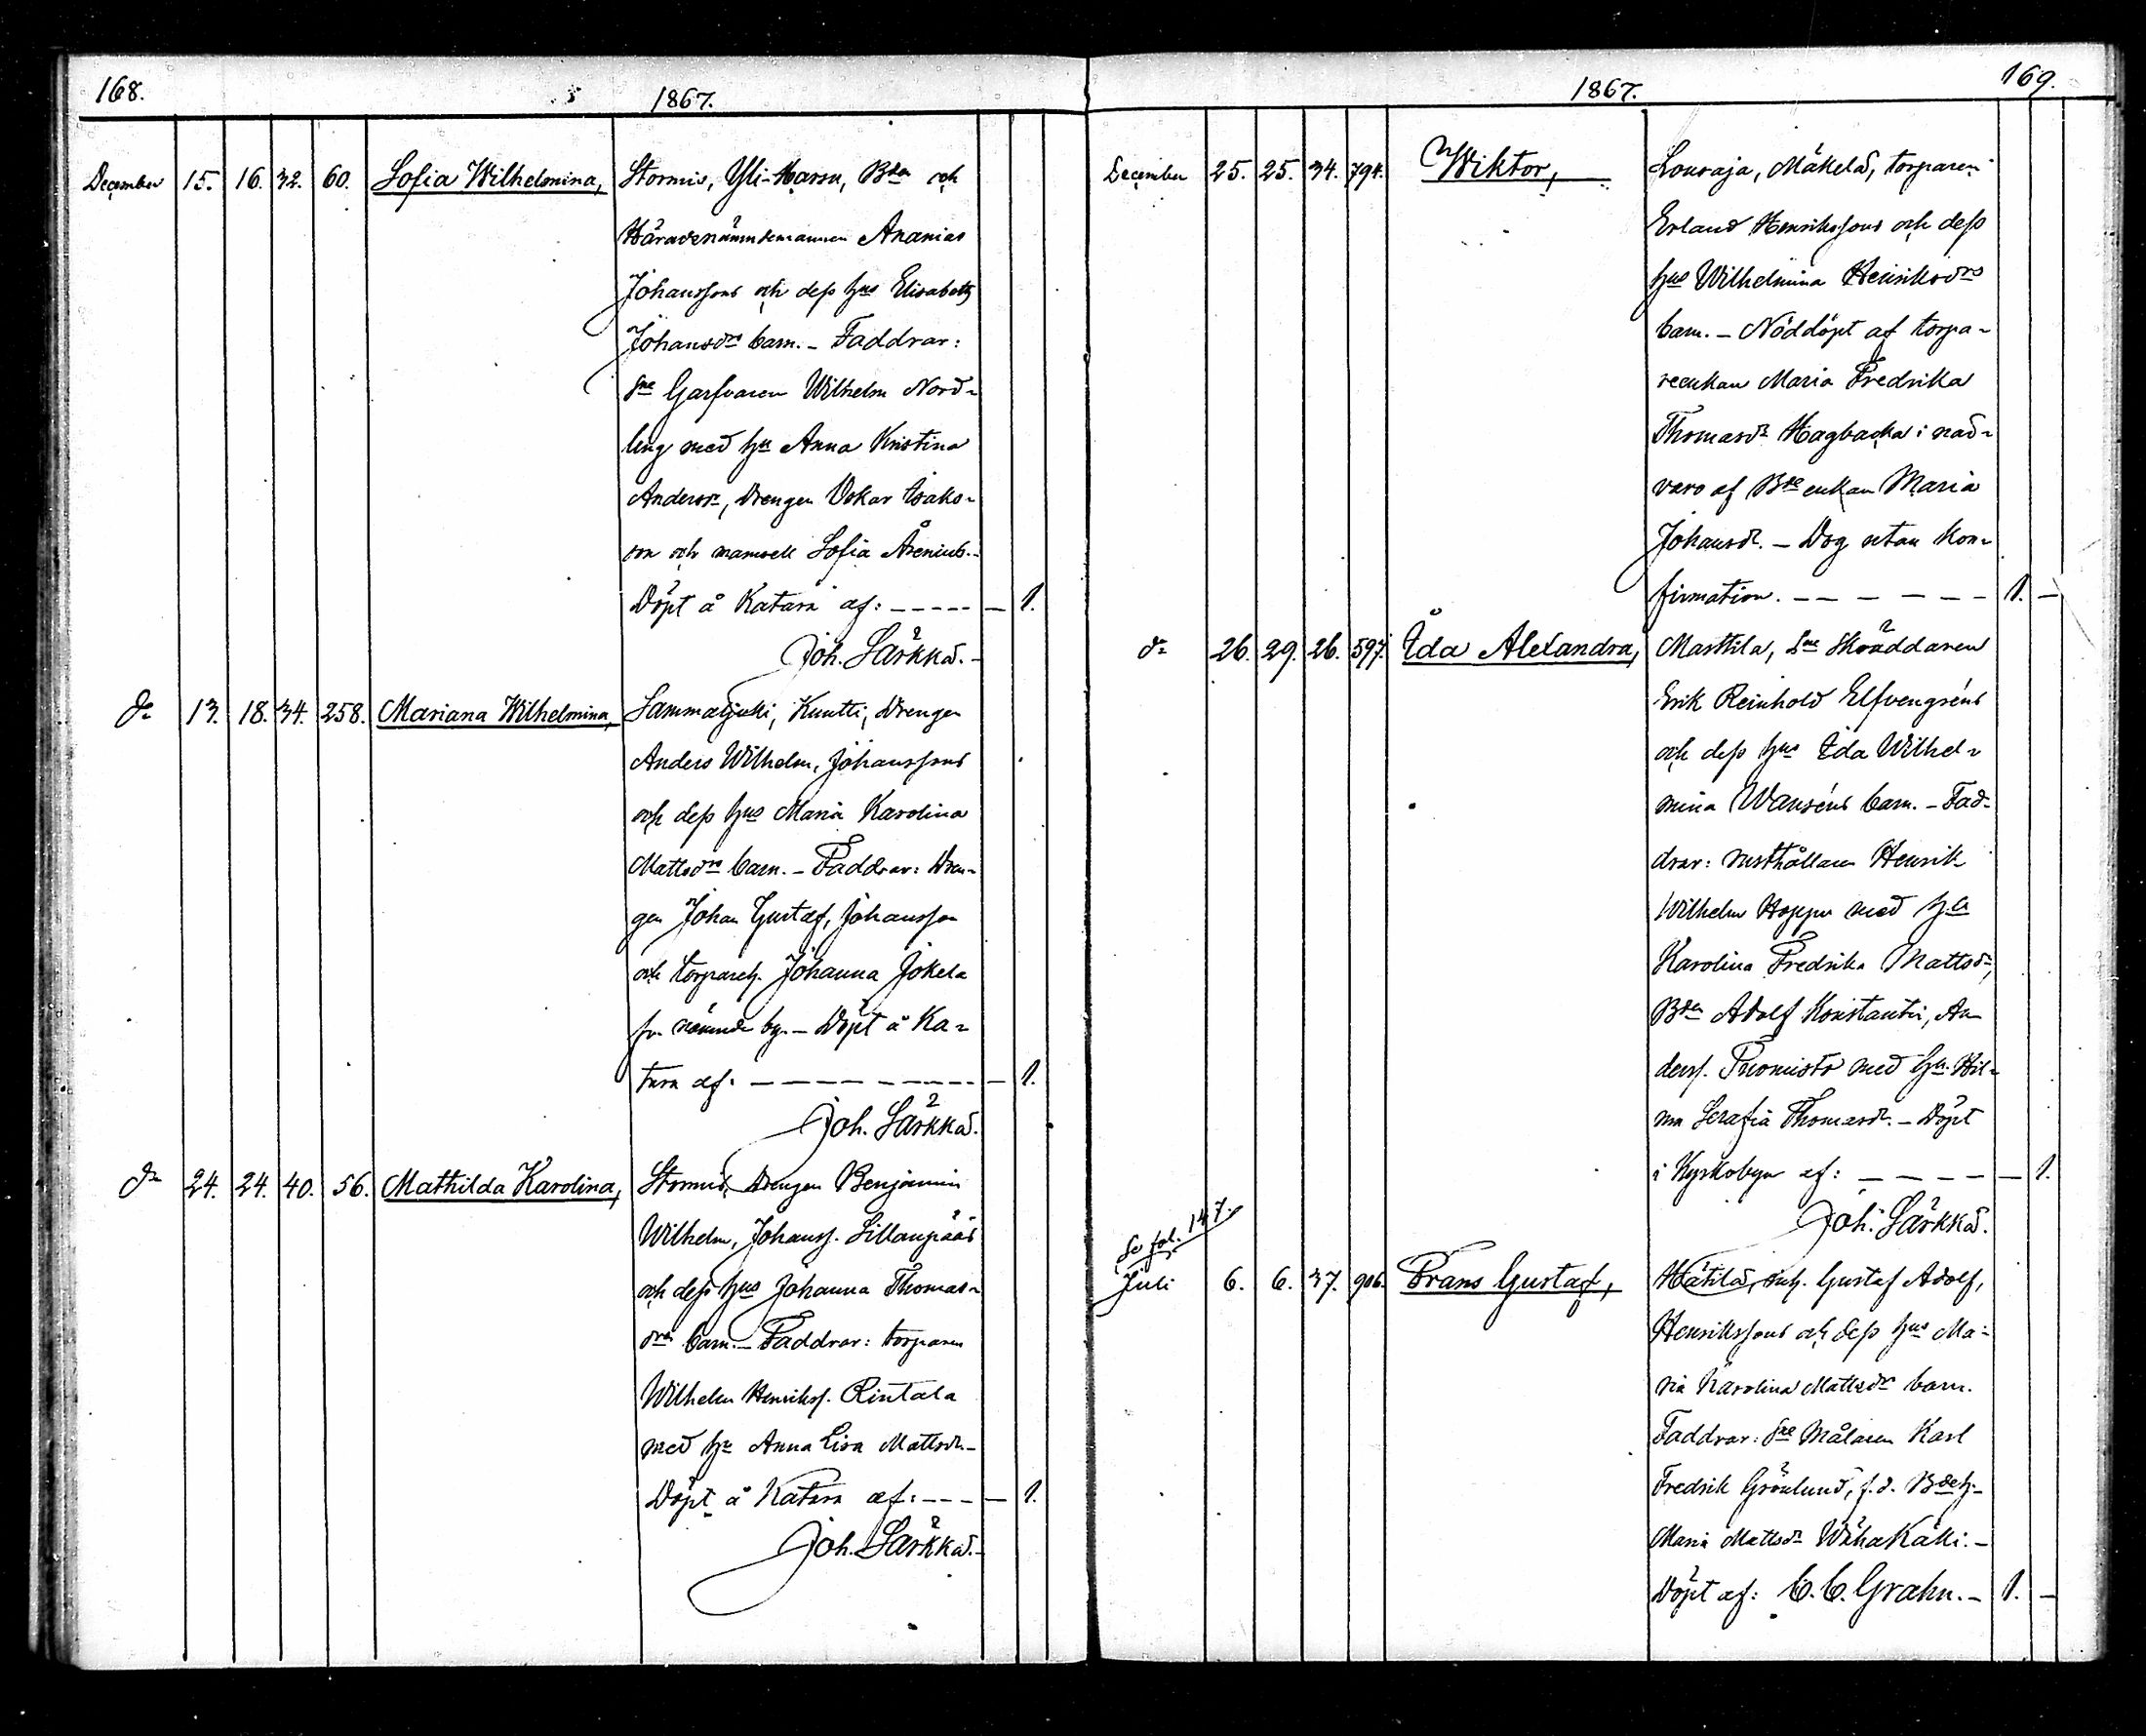 168.
1867.
December 15. 16. 32. 60. Sofia Wilhelmina, Stormis, Yli-Marra, Bden och
Häradznämndemannen Ananias
Johanssons och dess hus Elisabeth
Johansdrs barn. - Faddrar:
Sne Garfvaren Wilhelm Nord-
ling med hu Anna Kristina
Andersdr, Drengen Oskar Isaks-
son och mamsell Sofia Årenius.-
Döpt å Katara af: - - - - - - 1.
Joh. Särkkä. -
do 13. 18. 34. 258. Mariana Wilhelmina, Sammaljoki, Kuutti, Drengen
Anders Wilhelm, Johanssons
och dess hus Maria Karolina
Mattsdrs barn. - Faddrar: Dren-
gen Johan Gustaf, Johansson
och torpareh. Johanna Jokela
fr. nämnde by. - Döpt å Ka-
tara af: - - - - - - - - - 1.
Joh. Särkkä.
do 24. 24. 40. 56. Mathilda Karolina, Stormis, Drengen Benjamin
Wilhelm, Johanss. Sillanpääs
och dess hus Johanna Thomas-
drs barn. - Faddrar: torparen
Wilhelm Henrikss. Rintala
med hu Anna Lisa Mattsdr. -
Döpt å Katara af: - - - - 1.
Joh. Särkkä. -
169.
1867.
December 25. 25. 34. 794. Wiktor, Lousaja, Mäkelä, torparen
Erland Henrikssons och dess
hus Wilhelmina Henriksdrs
barn. - Nöddöpt af torpa-
reenkan Maria Fredrika
Thomasdr Hagbacka i när-
varo af Bde enkan Maria
Johansdr. - Dog utan kon-
firmation. - - - - - - 1. -
do 26. 29. 26. 597. Ida Alexandra, Marttila, Sne Skräddaren
Erik Reinhold Elfvengréns
och dess hus Ida Wilhel-
mina Wanséns barn. - Fad-
drar: rusthållaren Henrik
Wilhelm Hoppu med hu
Karolina Fredrika Mattsdr,
Bden Adolf Konstantin, An-
derss. Tuomisto med hu Hil-
ma Serafia Thomasdr. - Döpt
i Kyrkobyn af: - - - - - 1.
Joh. Särkkä.
Se fol. 147.
Juli 6. 6. 37. 906. Frans Gustaf, Hätilä, inh. Gustaf Adolf,
Henrikssons och dess hus Ma-
ria Karolina Mattsdrs barn.
Faddrar: Sne Målaren Karl
Fredrik Grönlund, f.d. Bdeh.
Maria Mattsdr Wähakäki. -
Döpt af: C. C. Grahn. - 1. -